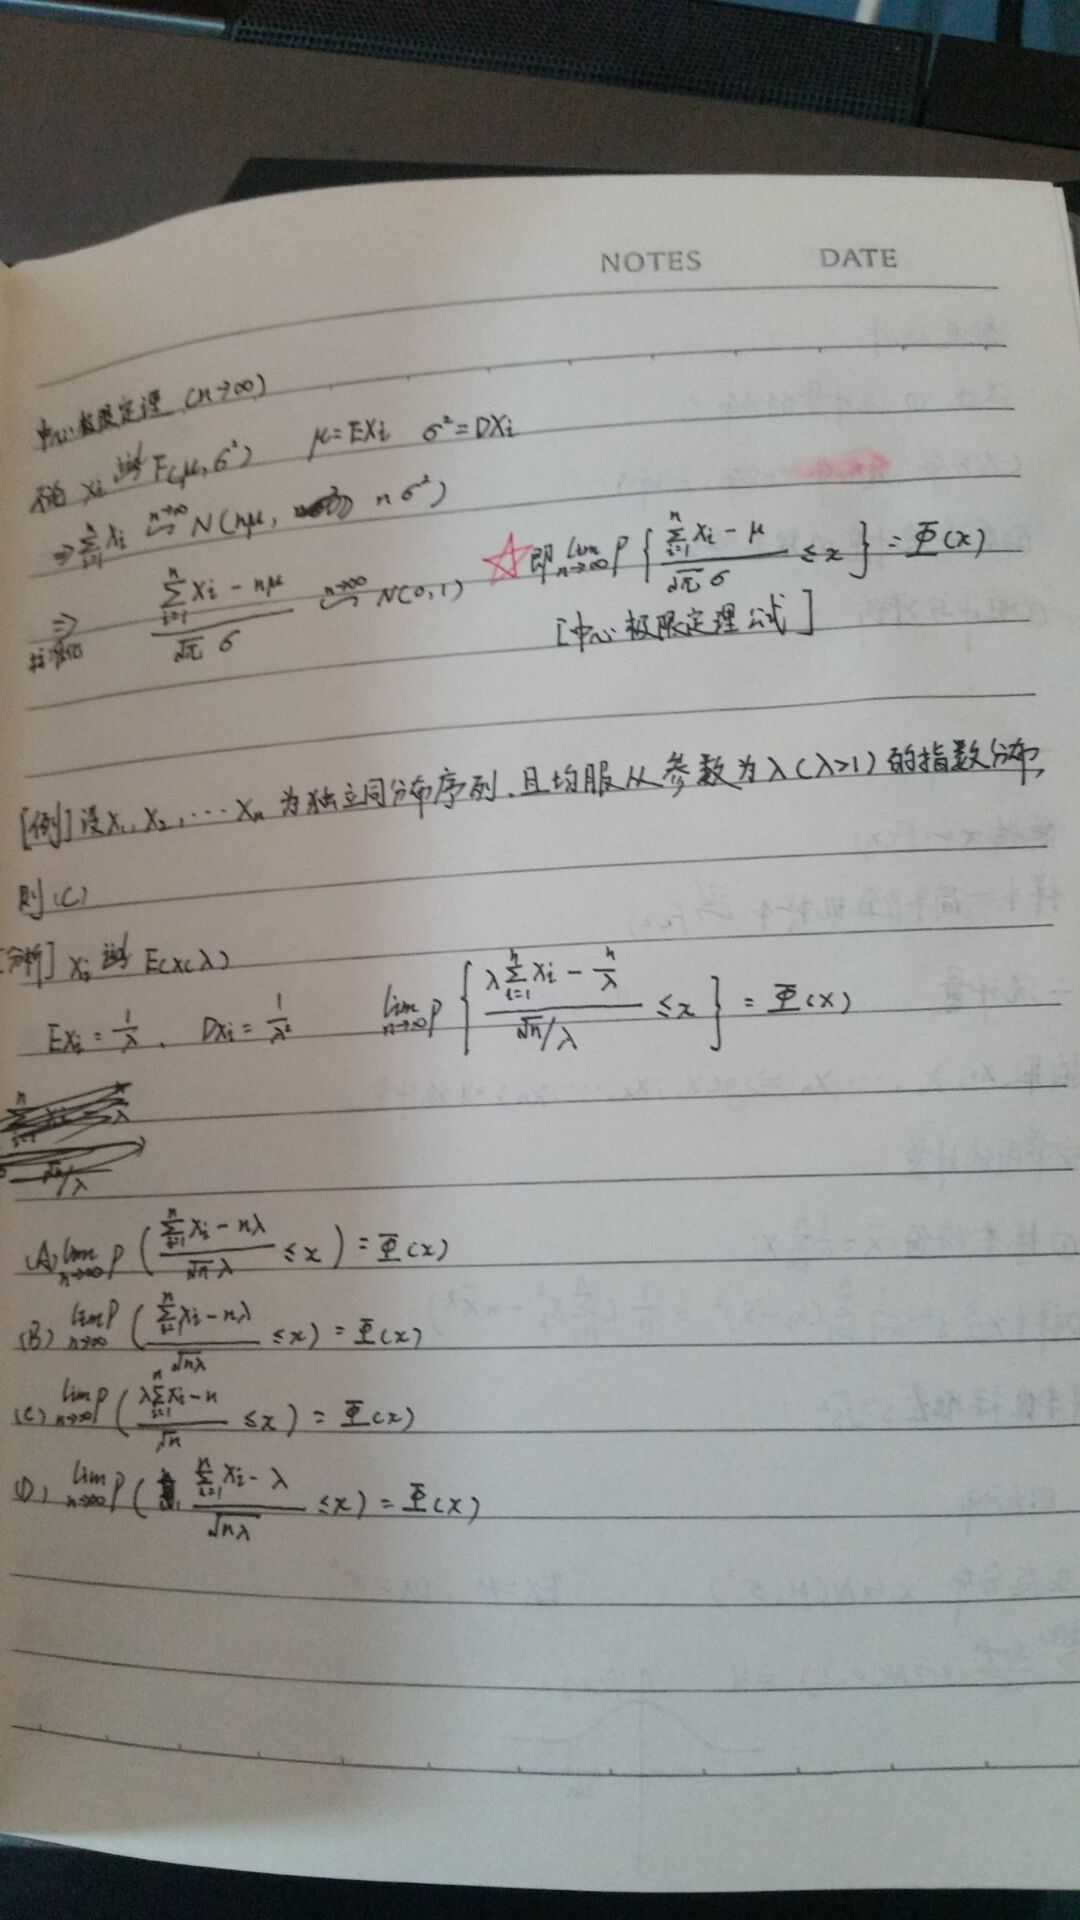 NOTES DATE
中心极限定理 (n→∞)
Xi iid F(μ, σ²) μ=EXi σ²=DXi
⇒ ∑_{i=1}^{n} Xi ~^{n→∞} N(nμ, nσ²)
⇒ (∑_{i=1}^{n} Xi − nμ)/(√n σ) ~^{n→∞} N(0,1) ☆即 lim_{n→∞} P{ (∑_{i=1}^{n} Xi − μ)/(√n σ) ≤ x } = Φ(x)
标准化
[中心极限定理公式]
[例] 设X₁, X₂, ⋯ Xn 为独立同分布序列,且均服从参数为λ(λ>1)的指数分布,
则(C)
[分析] Xi iid E(X(λ)
EXi = 1/λ, DXi = 1/λ² lim_{n→∞} P{ (λ∑_{i=1}^{n} Xi − n/λ)/(√n/λ) ≤ x } = Φ(x)
(A) lim_{n→∞} P( (∑_{i=1}^{n} Xi − nλ)/(√n λ) ≤ x ) = Φ(x)
(B) lim_{n→∞} P( (∑_{i=1}^{n} Xi − nλ)/√(nλ) ≤ x ) = Φ(x)
(C) lim_{n→∞} P( (λ∑_{i=1}^{n} Xi − n)/√n ≤ x ) = Φ(x)
(D) lim_{n→∞} P( (∑_{i=1}^{n} Xi − λ)/√(nλ) ≤ x ) = Φ(x)